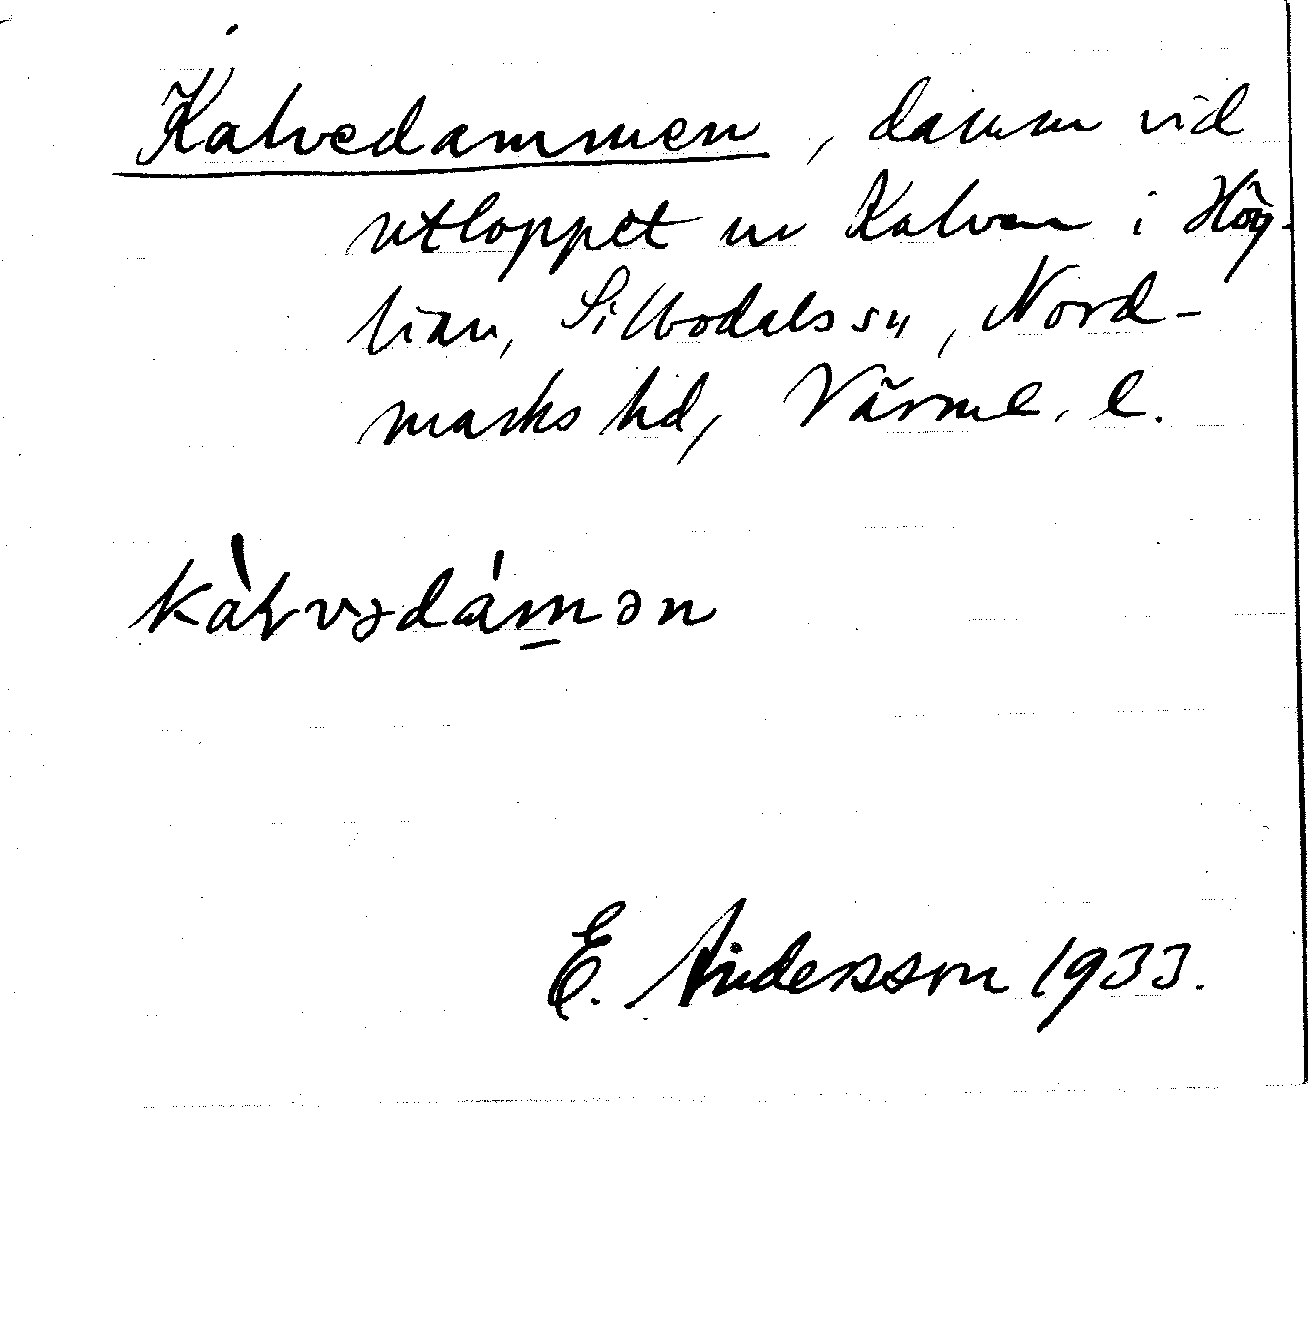 Kalvedammen, damm vid
utloppet ur Kalven i Hög-
lian, Silbodals sn, Nord-
marks hd, Värml. l.
kàḷvədámən
E. Andersson 1933.